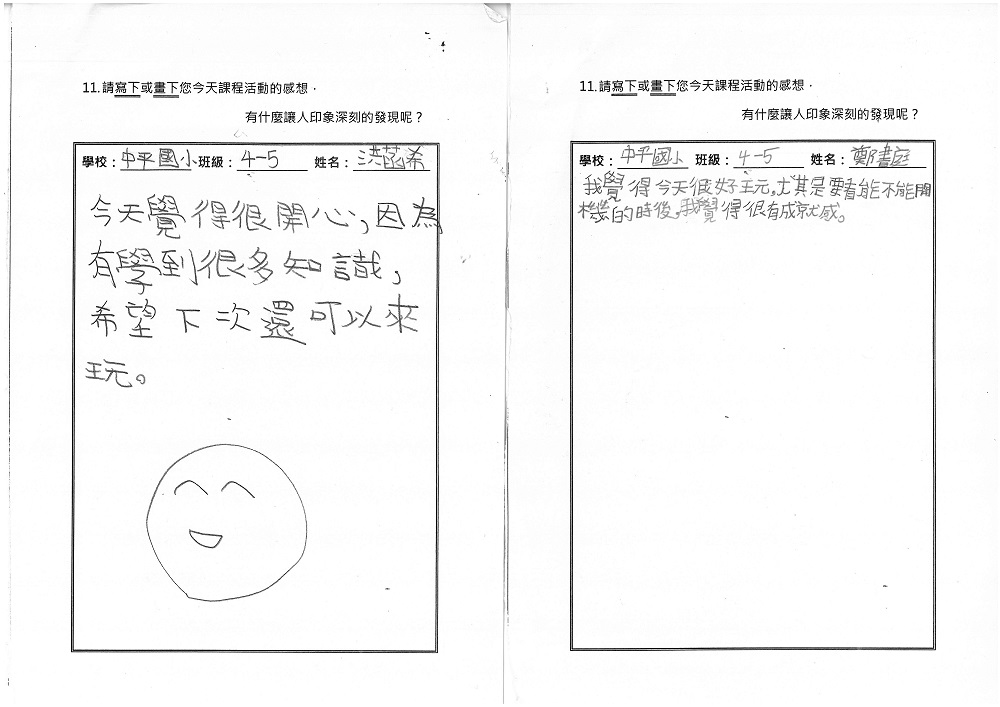 11.請寫下或畫下您今天課程活動的感想，
有什麼讓人印象深刻的發現呢？
學校：中平國小 班級：4-5 姓名：洪菡希
今天覺得很開心，因為
有學到很多知識，
希望下次還可以來
玩。
11.請寫下或畫下您今天課程活動的感想，
有什麼讓人印象深刻的發現呢？
學校：中平國小 班級：4-5 姓名：鄭書庭
我覺得今天很好玩，尤其是要看能不能開
機的時後，我覺得很有成就感。